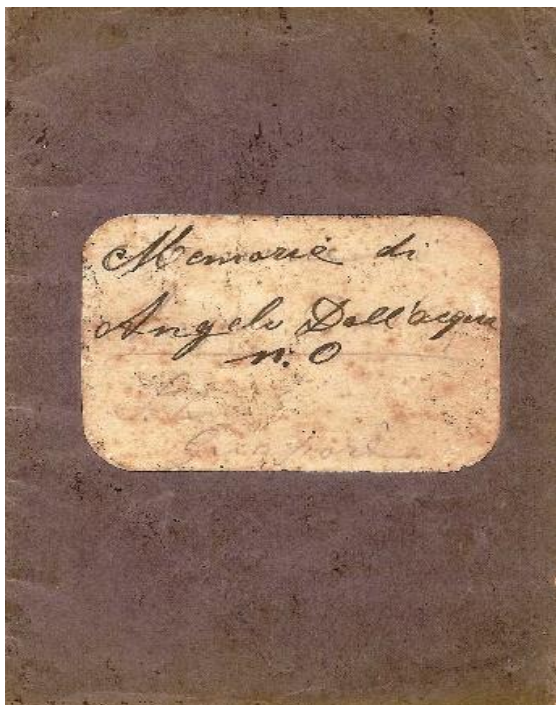 Memorie di
Angelo Dall'acqua
n. 0